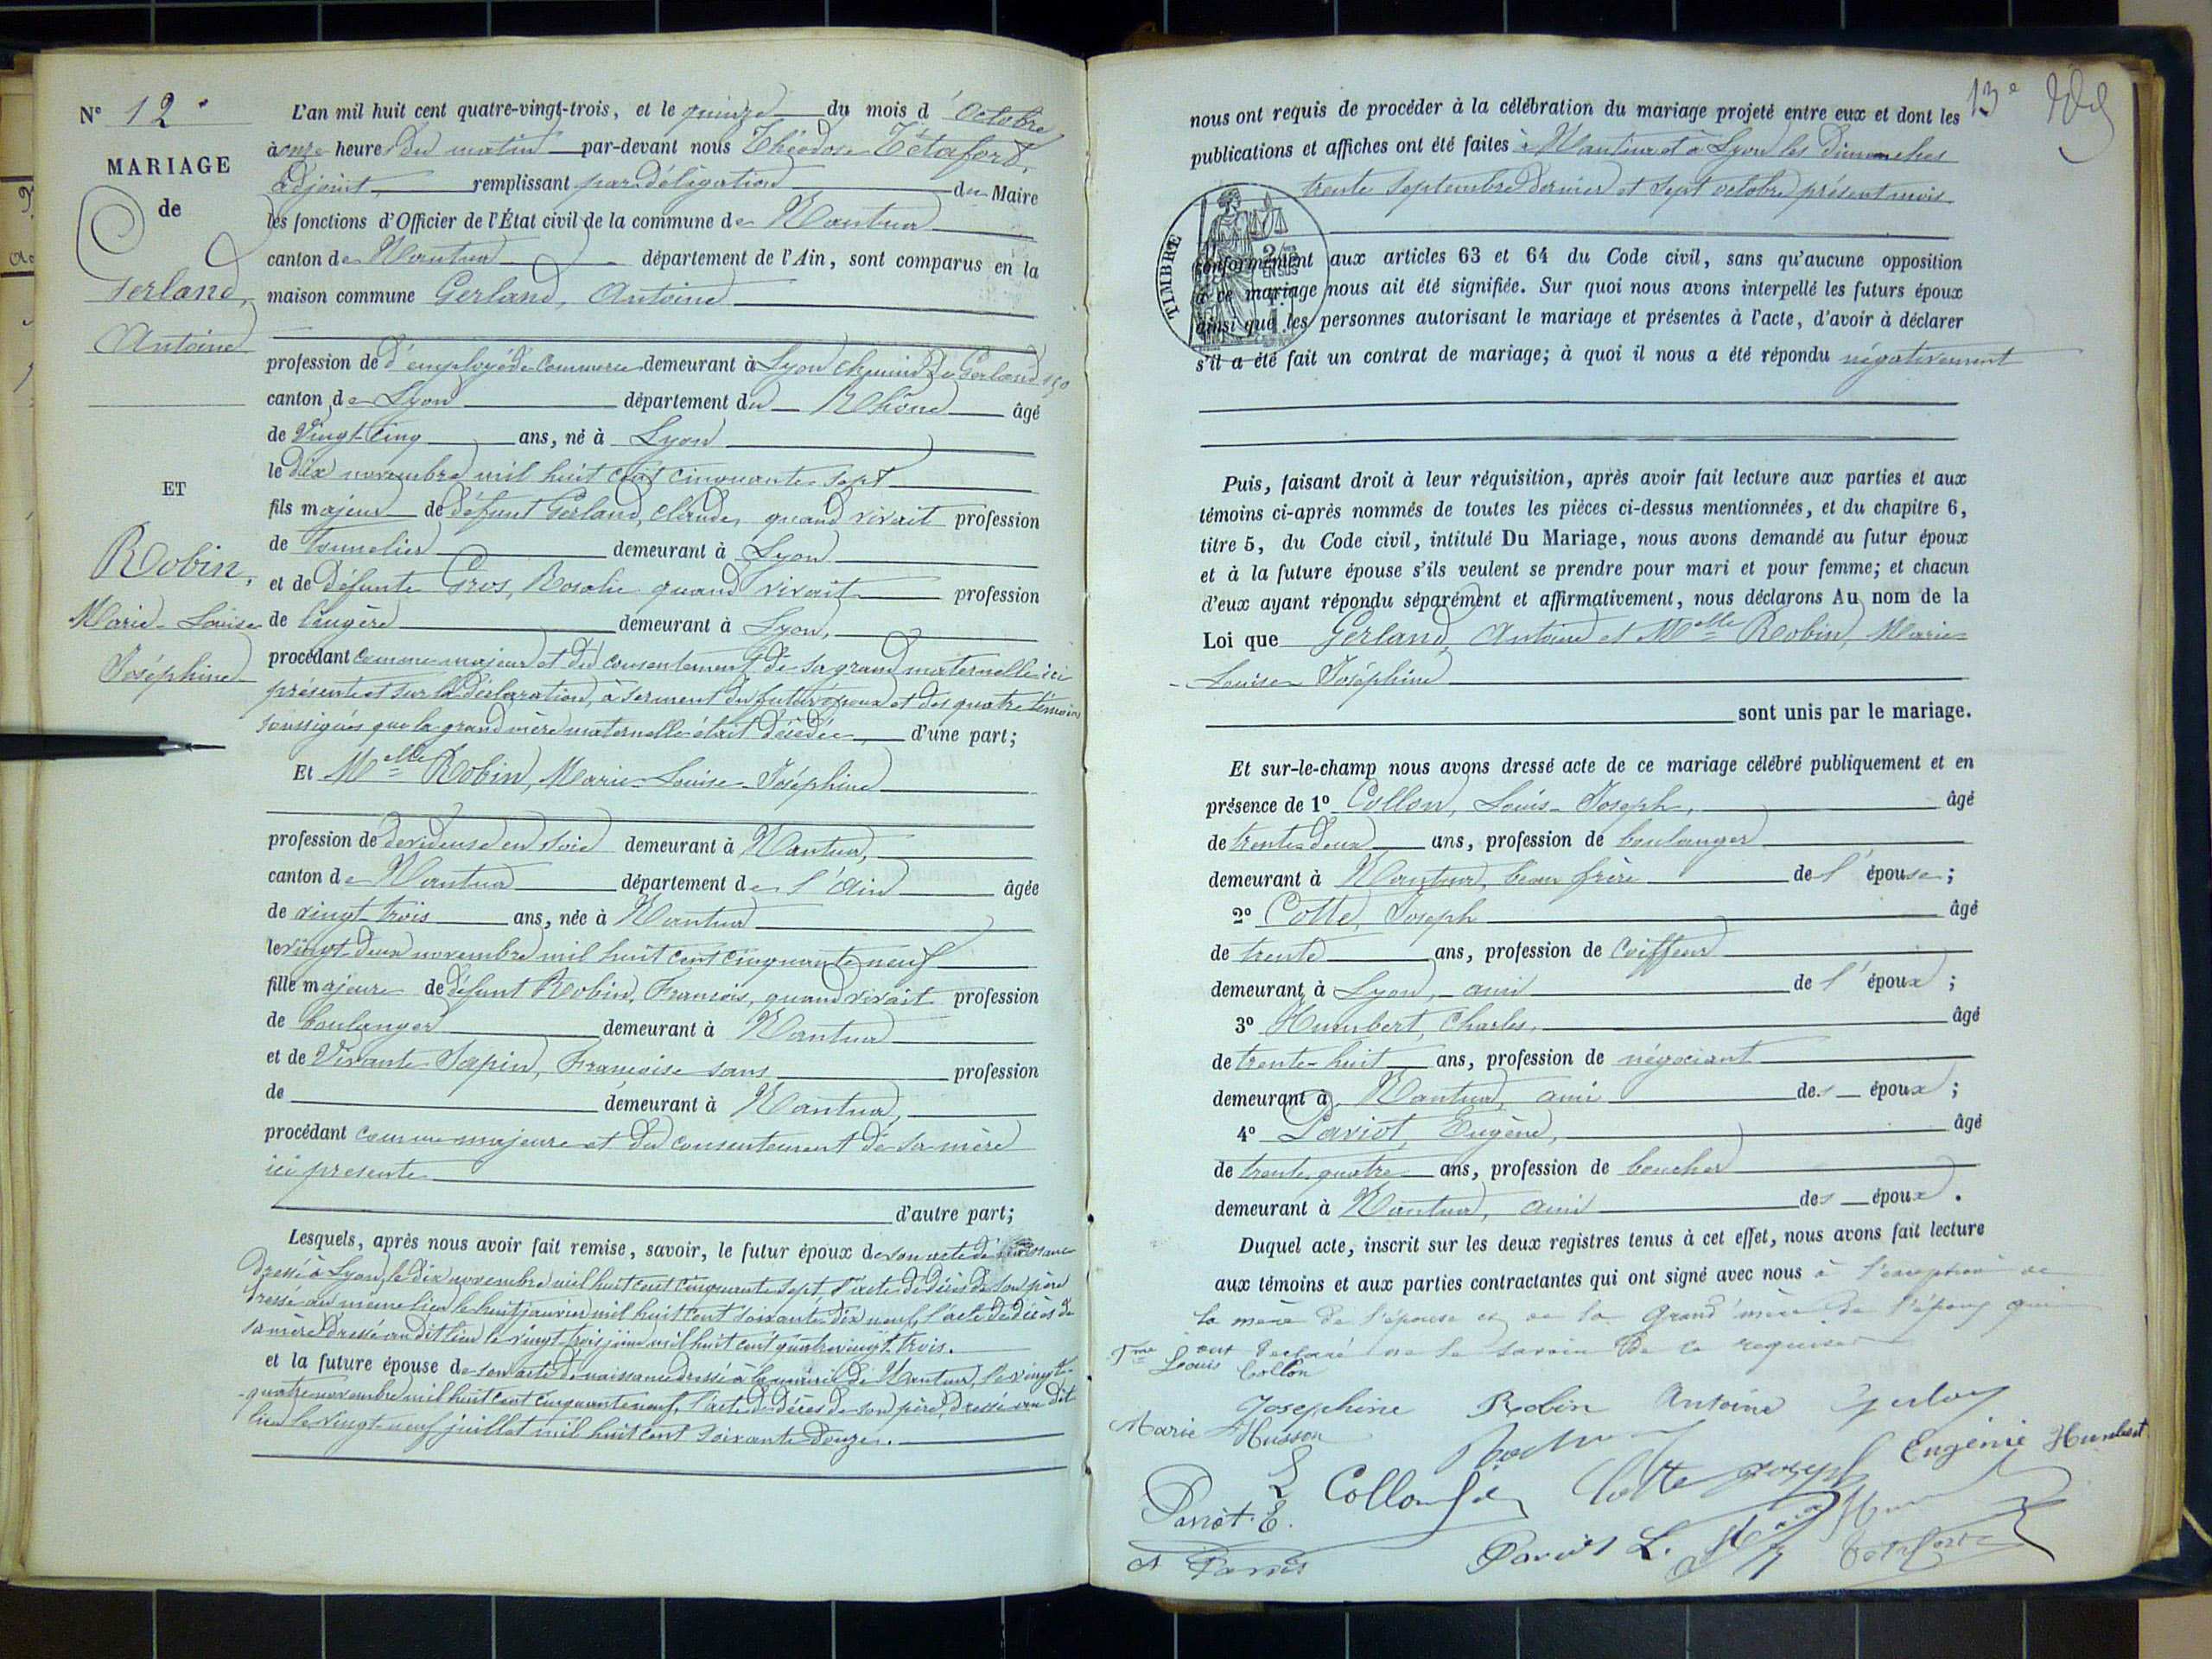 N° 12
MARIAGE
de
Gerland,
Antoine
ET
Robin,
Marie-Louise
Joséphine
L'an mil huit cent quatre-vingt-trois, et le quinze du mois d'Octobre
à onze heures du matin par-devant nous Théodose Tétafort,
adjoint, remplissant par délégation du Maire
les fonctions d'Officier de l'État civil de la commune de Nantua
canton de Nantua département de l'Ain, sont comparus en la
maison commune Gerland, Antoine
profession de d'employé de Commerce demeurant à Lyon chemin de Gerland 150
canton de Lyon département du Rhône âgé
de Vingt-Cinq ans, né à Lyon
le dix novembre mil huit cent cinquante-sept
fils majeur de défunt Gerland, Claude, quand vivait profession
de Tonnelier demeurant à Lyon
et de défunte Gros, Rosalie quand vivait profession
de lingère demeurant à Lyon,
procédant comme majeur et du consentement de sa grand maternelle ici
présente et sur la déclaration à serment du futur époux et des quatre témoins
soussignés que la grand mère maternelle était décédée d'une part;
Et Melle Robin, Marie-Louise-Joséphine
profession de dévideuse en soie demeurant à Nantua,
canton de Nantua département de l'Ain âgée
de vingt-trois ans, née à Nantua
le vingt-deux novembre mil huit cent cinquante neuf
fille majeure de défunt Robin, François, quand vivait profession
de boulanger demeurant à Nantua
et de Vivante Sapin, Françoise sans profession
de demeurant à Nantua,
procédant comme majeure et du consentement de sa mère
ici presente
d'autre part;
Lesquels, après nous avoir fait remise, savoir, le futur époux de son acte de naissance
dressé à Lyon, le dix novembre mil huit cent cinquante sept, l'acte de décès de son père
dressé au même lieu le huit janvier mil huit cent soixante dix neuf, l'acte de décès de
sa mère dressé au dit lieu le vingt trois juin mil huit cent quatre vingt trois.
et la future épouse de son acte de naissance dressé à la mairie de Nantua, le vingt-
-quatre novembre mil huit cent cinquante neuf, l'acte de décès de son père, dressé au dit
lieu le vingt neuf juillet mil huit cent soixante douze.
13e
nous ont requis de procéder à la célébration du mariage projeté entre eux et dont les
publications et affiches ont été faites à Nantua et à Lyon les Dimanches
trente Septembre dernier et Sept octobre présent mois
TIMBRE
2/10 EN SUS
conformément aux articles 63 et 64 du Code civil, sans qu'aucune opposition
à ce mariage nous ait été signifiée. Sur quoi nous avons interpellé les futurs époux
ainsi que les personnes autorisant le mariage et présentes à l'acte, d'avoir à déclarer
s'il a été fait un contrat de mariage; à quoi il nous a été répondu négativement
Puis, faisant droit à leur réquisition, après avoir fait lecture aux parties et aux
témoins ci-après nommés de toutes les pièces ci-dessus mentionnées, et du chapitre 6,
titre 5, du Code civil, intitulé Du Mariage, nous avons demandé au futur époux
et à la future épouse s'ils veulent se prendre pour mari et pour femme; et chacun
d'eux ayant répondu séparément et affirmativement, nous déclarons Au nom de la
Loi que Gerland, Antoine et Melle Robin, Marie-
-Louise Joséphine
sont unis par le mariage.
Et sur-le-champ nous avons dressé acte de ce mariage célébré publiquement et en
présence de 1° Collon, Louis-Joseph, âgé
de trente deux ans, profession de boulanger
demeurant à Nantua, beau frère de l'épouse;
2° Cotte, Joseph âgé
de trente ans, profession de Coiffeur
demeurant à Lyon, ami de l'époux;
3° Humbert, Charles, âgé
de trente-huit ans, profession de négociant
demeurant à Nantua, ami des époux;
4° Paviot, Eugène, âgé
de trente quatre ans, profession de boucher
demeurant à Nantua, ami des époux.
Duquel acte, inscrit sur les deux registres tenus à cet effet, nous avons fait lecture
aux témoins et aux parties contractantes qui ont signé avec nous à l'exception de
la mère de l'épouse et de la grand'mère de l'époux qui
ont déclaré ne le savoir de ce requises
Louis Collon
Josephine Robin Antoine Gerland
Marie Husson
Eugénie Humbert
Collon Cotte Joseph
Paviot. E.
Paviot L. Tétafort